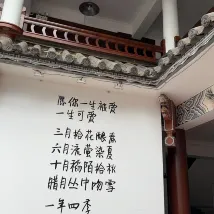 愿你一生被爱
一生可爱
三月拾花酿春
六月流萤染夏
十月稻陌拾秋
腊月丛中吻雪
一年四季